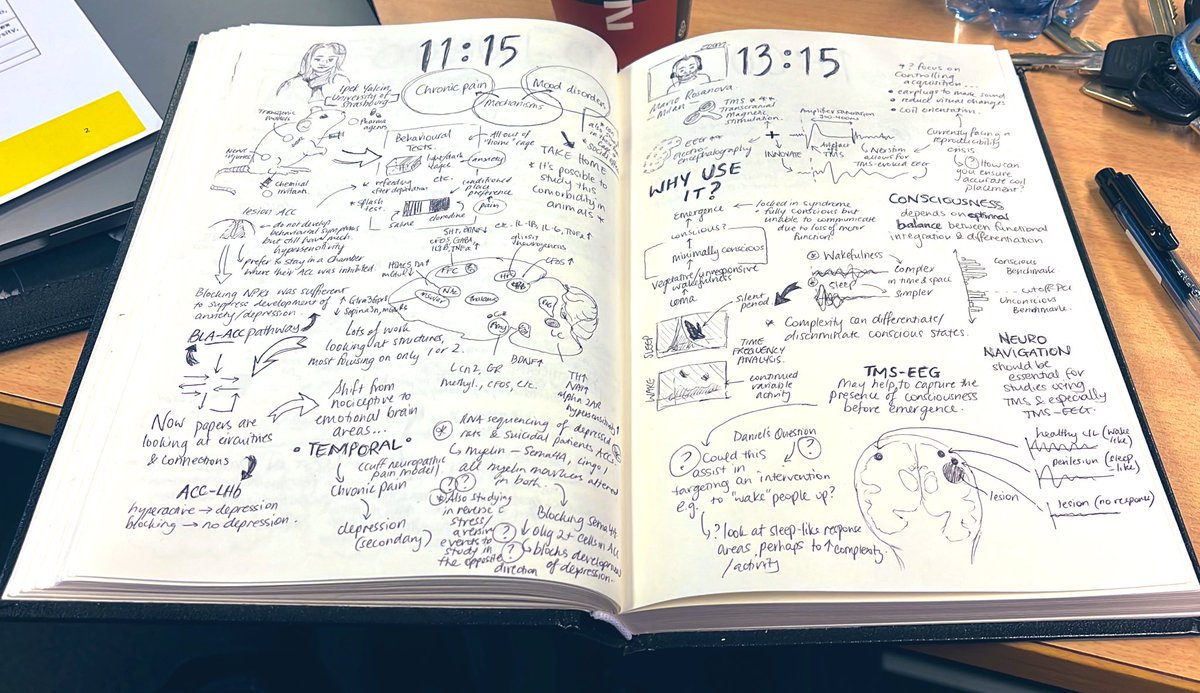 11:15
Ipek Yalcin,
University of
Strasbourg
Chronic pain
Mood disorders
Mechanisms
Transgenic
Pharma
agents
Nerve
injuries
chemical
irritant
Behavioural
Tests.
All out of
"home" cage
light/dark
cages
anxiety
refeeding
after deprivation
etc.
splash
test.
conditioned
place
preference
pain
saline
clonidine
TAKE HOME
* It's
possible to
study this
comorbidity in
animals *
lesion ACC
do not develop
behavioural symptoms
but still have mech.
hypersensitivity
prefer to stay in a chamber
where their ACC was inhibited.
etc. IL-1B, IL-6, TNFα↑
cFOS, GABA,
cFOS↑
PFC
NAc
thalamus
HP
Amy
LC
BDNF↑
Lcn2, GR
methyl., cFOS, etc.
TH↑
alpha 2AR
hypersensitivity↑
Blocking NPRs was sufficient
to suppress development of
anxiety/depression.
BLA-Acc pathway
Lots of work
looking at structures,
most focusing on only 1 or 2.
Now papers are
looking at circuitries
& connections
Shift from
nociceptive to
emotional brain
areas...
ACC-LHb
hyperactive → depression
blocking → no depression.
TEMPORAL
(cuff neuropathic
pain model)
Chronic pain
depression
(secondary)
RNA sequencing of depressed
rats & suicidal patients ACC
myelin - Sema4A, Lingo1
all myelin markers altered
in both.
Also studying
in reverse
stress/
aversive
events to
study in
the opposite
direction
Blocking Sema4A
Olig 2+ cells in ACC
blocks development
of depression.
zoom
13:15
Mario Rosanova -
Milan
TMS
Transcranial
Magnetic
Stimulation.
EEG
Electro-
encephalography
+
INNOVATE
Amplifier saturation
Artefact
TMS
Nexstim
allows for
TMS-evoked EEG
? focus on
controlling
acquisition...
• earplugs to mask sound
• reduce visual changes
• coil orientation.
Currently facing a
reproducibility
crisis
? How can
you ensure
accurate coil
placement?
WHY USE
IT?
Emergence
locked in syndrome
- fully conscious but
unable to communicate
due to loss of motor
function.
conscious?
minimally conscious
Vegetative/unresponsive
wakefulness
coma
CONSCIOUSNESS
depends on optimal
balance between functional
integration & differentiation
Wakefulness
Complex
in time & space
Sleep
Simpler
* Complexity can differentiate/
discriminate conscious states.
Conscious
Benchmark
cutoff PCI
Unconscious
Benchmark.
Silent
period
SLEEP
TIME
FREQUENCY
ANALYSIS.
WAKE
continued
variable
activity
TMS-EEG
May help to capture the
presence of consciousness
before emergence.
NEURO
NAVIGATION
should be
essential for
studies using
TMS & especially
TMS-EEG.
Daniel's Question
? Could this ?
assist in
targeting an intervention
e.g. to "wake" people up?
? look at sleep-like response
areas, perhaps to ↑ complexity
/activity
healthy c/l (wake
like)
perilesion (sleep
-like)
lesion (no response)
lesion
2